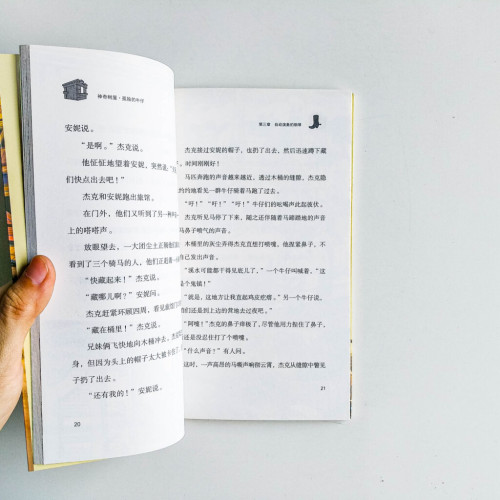 神奇树屋·孤独的牛仔
安妮说。
“是啊。”杰克说。
他怔怔地望着安妮，突然说：“
们快点出去吧！”
杰克和安妮跑出旅馆。
在门外，他们又听到了另一种
上的嗒嗒声。
放眼望去，一大团尘土正
看到了三个骑马的人，他们正
“快藏起来！”杰克说。
“藏哪儿啊？”安妮问。
杰克赶紧环顾四周，看见
“藏在桶里！”杰克说。
兄妹俩飞快地向木桶冲去。
身，但因为头上的帽子太大
子扔了出去。
“还有我的！”安妮说。
20
第三章
杰克接过安妮的帽子，也扔了出去，然后迅速蹲下藏
时间刚刚好！
马匹奔跑的声音越来越近。通过木桶的缝隙，杰克隐
约地看见一群牛仔骑着马跑了过去。
“吁！”“吁！”“吁！”牛仔们的吆喝声此起彼伏。
杰克听见马停了下来，随之还伴随着马蹄踏地的声音
马鼻子喷气的声音。
木桶里的灰尘弄得杰克直想打喷嚏，他捏紧鼻子，不
自己发出声音。
“溪水可能都干得见底儿了，”一个牛仔叫喊着，“这
是个鬼镇！”
“就是，这地方让我直起鸡皮疙瘩。”另一个牛仔说，
们还是到上边的营地去过夜吧。”
“阿嚏！”杰克的鼻子痒极了，尽管他用力捏住了鼻子，
还是没忍住打了个喷嚏。
“什么声音？”有人问。
这时，一声高昂的马嘶声响彻云霄，杰克从缝隙中瞥见
21